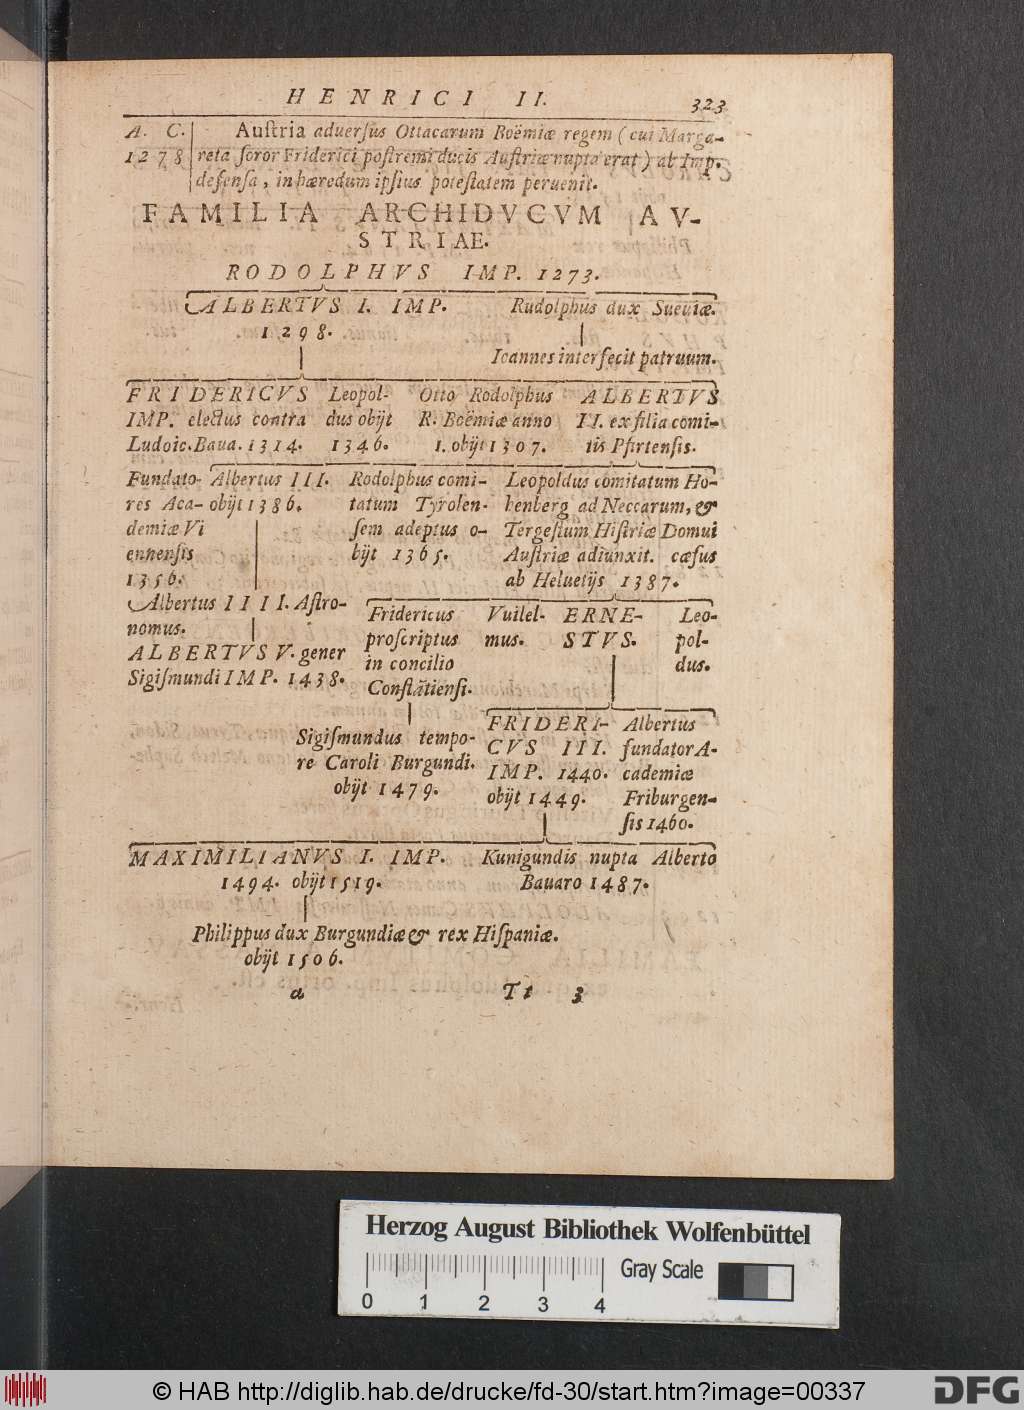 HENRICI II. 323
A. C. Auſtria aduerſus Ottacarum Boëmiæ regem (cui Marga-
1278 reta ſoror Friderici poſtremi ducis Auſtriæ nupta erat) ab Imp.
defenſa, in hæredum ipſius poteſtatem peruenit.
FAMILIA ARCHIDVCVM AV-
STRIAE.
RODOLPHVS IMP. 1273.
ALBERTVS I. IMP. Rudolphus dux Sueuiæ.
1298.
Ioannes interfecit patruum.
FRIDERICVS Leopol- Otto Rodolphus ALBERTVS
IMP. electus contra dus obijt R. Boëmiæ anno II. ex filia comi-
Ludoic. Baua. 1314. 1346. 1. obijt 1307. tis Pfirtenſis.
Fundato- Albertus III. Rodolphus comi- Leopoldus comitatum Ho-
res Aca- obijt 1386. tatum Tyrolen- henberg ad Neccarum, &
demiæ Vi ſem adeptus o- Tergeſtum Hiſtriæ Domui
ennenſis bijt 1365. Auſtriæ adiunxit. cæſus
1356. ab Heluetijs 1387.
Albertus IIII. Aſtro- Fridericus Vuilel- ERNE- Leo-
nomus. proſcriptus mus. STVS. pol-
ALBERTVS V. gener in concilio dus.
Sigiſmundi IMP. 1438. Conſtātienſi.
Sigiſmundus tempo- FRIDERI- Albertus
re Caroli Burgundi. CVS III. fundator A-
obijt 1479. IMP. 1440. cademiæ
obijt 1449. Friburgen-
ſis 1460.
MAXIMILIANVS I. IMP. Kunigundis nupta Alberto
1494. obijt 1519. Bauaro 1487.
Philippus dux Burgundiæ & rex Hiſpaniæ.
obijt 1506.
a Tt 3
Herzog August Bibliothek Wolfenbüttel
Gray Scale
0 1 2 3 4
© HAB http://diglib.hab.de/drucke/fd-30/start.htm?image=00337
DFG